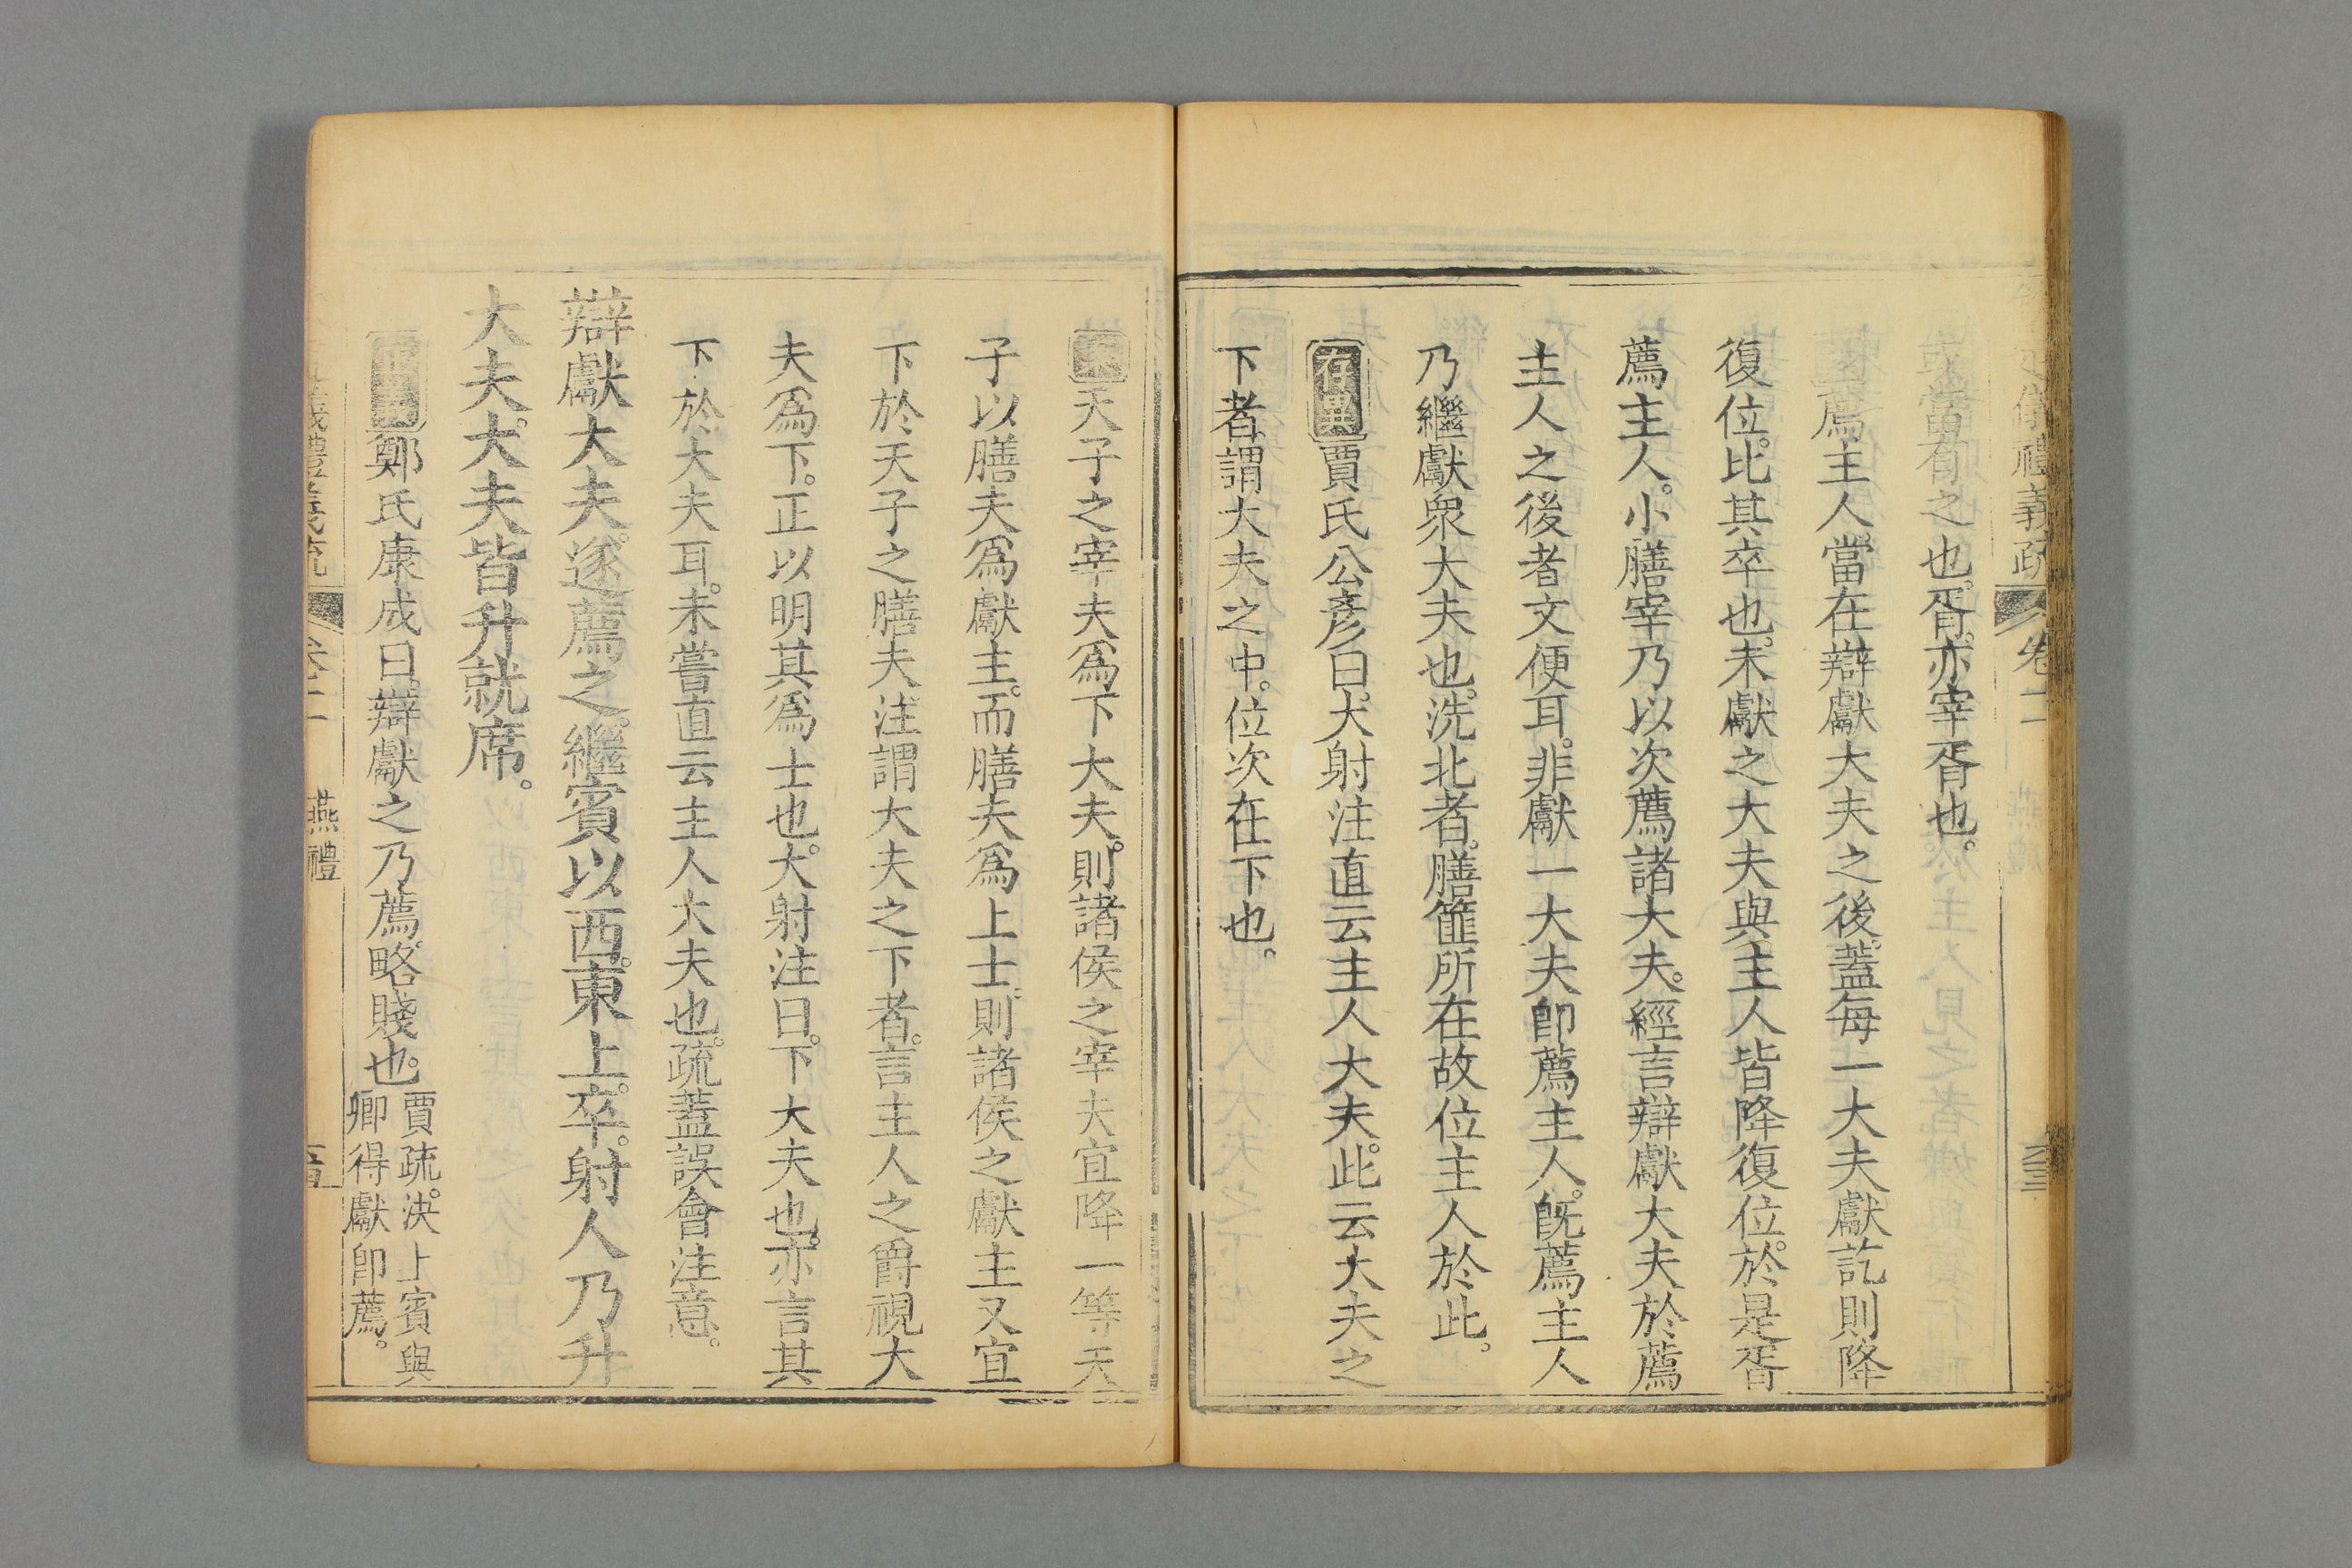 儀禮義疏 卷十二
當有之也。胥。亦宰胥也。
薦主人。當在辯獻大夫之後。蓋每一大夫獻訖則降
復位。比其卒也。未獻之大夫與主人皆降復位。於是胥
薦主人。小膳宰乃以次薦諸大夫。經言辯獻大夫於薦
主人之後者文便耳。非獻一大夫卽薦主人。旣薦主人
乃繼獻衆大夫也。洗北者。膳篚所在故位主人於此。
存異賈氏公彥曰。大射注直云主人大夫。此云大夫之
下者。謂大夫之中。位次在下也。
案天子之宰夫爲下大夫。則諸侯之宰夫宜降一等天
子以膳夫爲獻主。而膳夫爲上士。則諸侯之獻主又宜
下於天子之膳夫。注謂大夫之下者。言主人之爵視大
夫爲下。正以明其爲士也。大射注曰。下大夫也。亦言其
下於大夫耳。未嘗直云主人大夫也。疏蓋誤會注意。
辯獻大夫。遂薦之。繼賓以西。東上。卒。射人乃升
大夫。大夫皆升就席。
鄭氏康成曰。辯獻之乃薦。略賤也。賈疏。決上賓與
卿得獻卽薦。
義禮義疏 燕禮